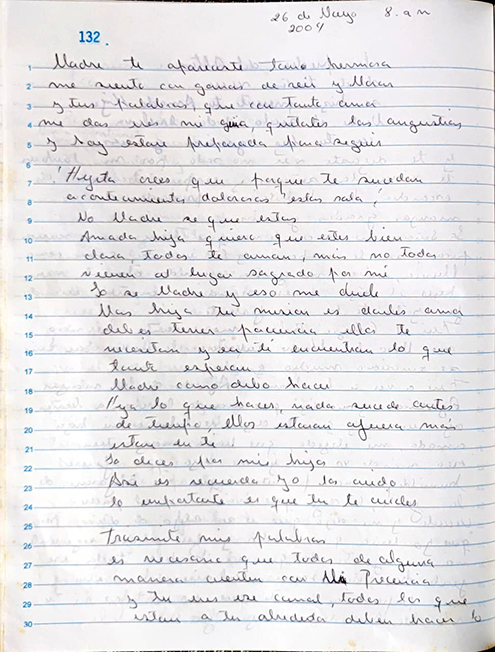 26 de Mayo 8. a m
2004
132.
1 Madre te apareciste tan hermosa
2 me siento con ganas de reir y llorar
3 y tus palabras, que con tanto amor
4 me das ves mi guia, quitates las angustias
5 y hoy estare preparada para seguir
6
7 "Hijita crees que porque te sucedan
8 acontecimientos dolorosos estas sola"
9 No Madre se que estas
10 Amada hija quiero que estes bien
11 clara, todos te aman, mas no todos
12 vienen al lugar sagrado por mi
13 Lo se Madre y eso me duele
14 Mas hija tu mision es darles amor
15 debes tener paciencia ellos te
16 necesitan y en ti encuentran lo que
17 tanto esperan
18 Madre como debo hacer
19 Hija lo que haces, nada sucede antes
20 de tiempo, ellos estaran afuera mas
21 estan en ti
22 Lo dices por mis hijos
23 Asi es recuerda yo los cuido
24 lo importante es que tu te cuides
25
26 Trasmite mis palabras
27 es necesario que todos de alguna
28 manera cuenten con Mi Precencia
29 y tu eres ese canal, todos los que
30 estan a tu alrededor deben hacer lo